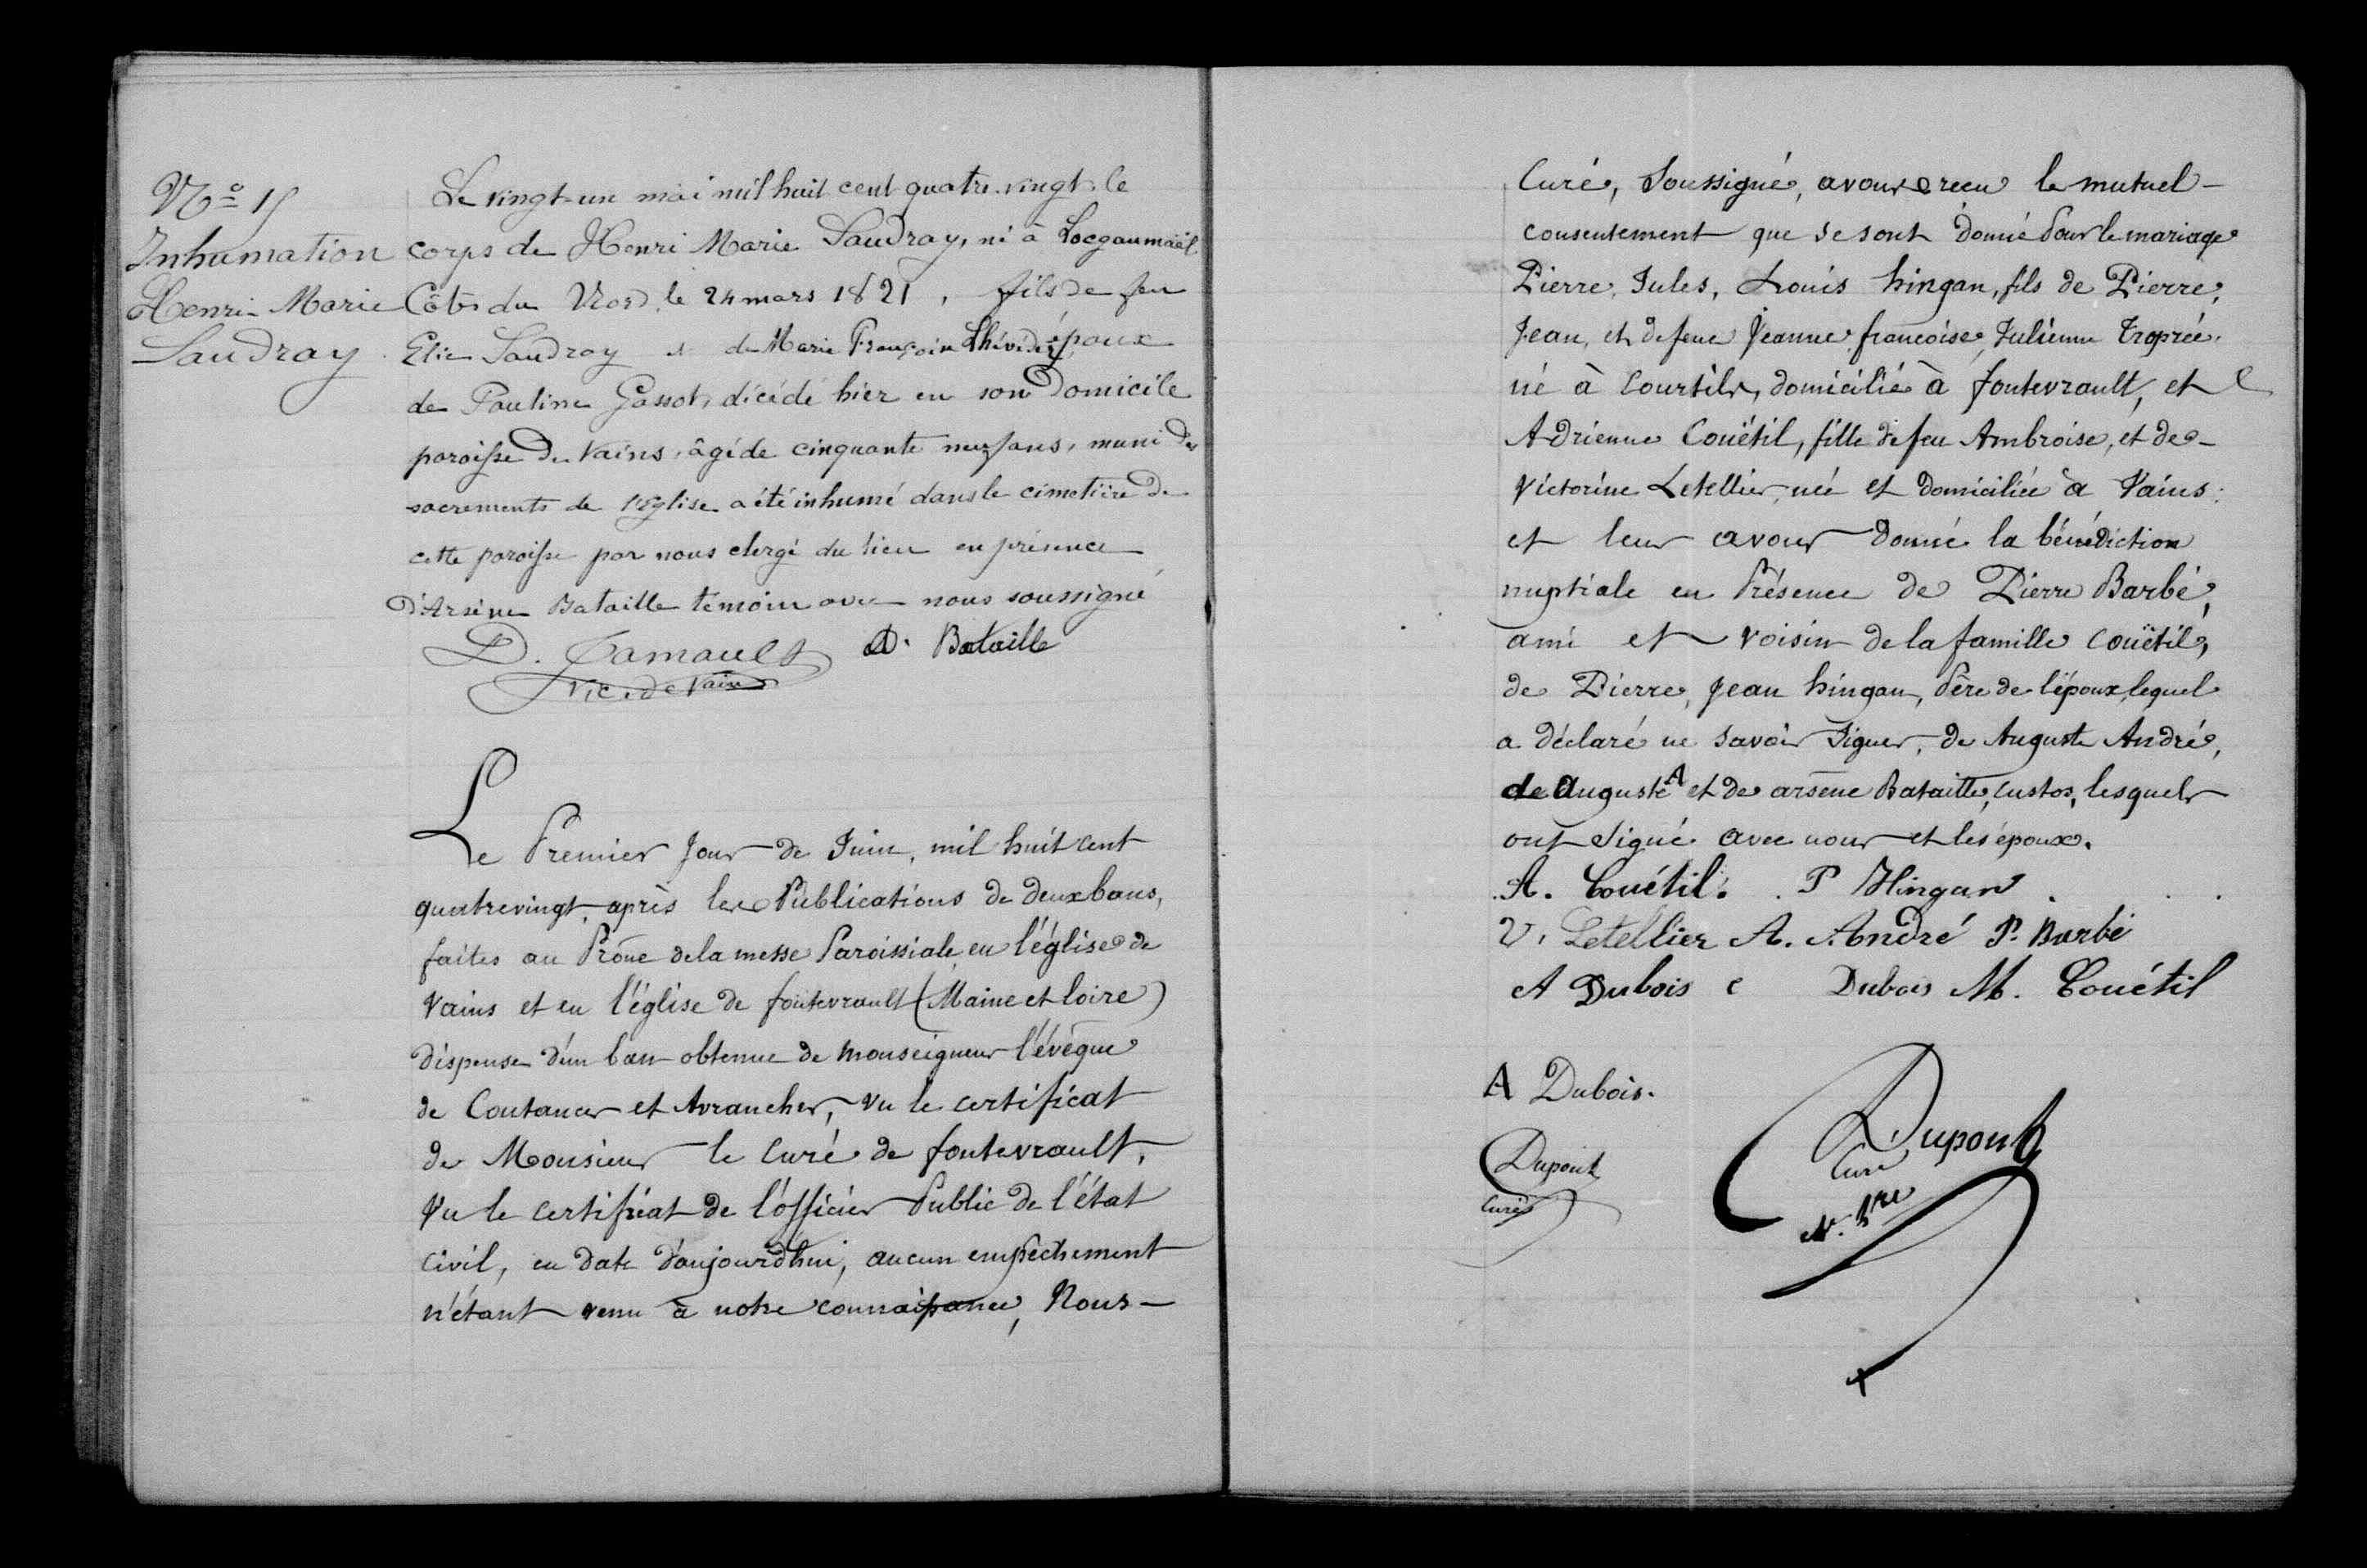 Inhumation
Henri Marie
Saudray
Le vingt-un mai mil huit cent quatre-vingt le
corps de Henri Marie Saudray, né à
Côtes du Nord le 24 mars 1821, fils de feu
Elie Saudray et de Marie Françoise époux
de Pauline Gassot, décédé hier en son Domicile
paroisse de Vains, âgé de cinquante neuf ans, muni des
sacrements de l'Eglise a été inhumé dans le cimetière de
cette paroisse par nous clergé du lieu en présence
d'Arsène Bataille temoin avec nous soussigné
A. Bataille
Vic. de Vains
Le Premier Jour de Juin, mil huit cent
quatrevingt, après les Publications de deux bans,
faites au Prône de la messe Paroissiale, en l'église de
Vains et en l'église de fontevrault (Maine et Loire)
dispense d'un ban obtenue de Monseigneur l'évêque
de Coutances et Avranches, vu le certificat
de Monsieur le Curé de fontevrault,
Vu le certificat de l'officier Public de l'état
Civil, en date d'aujourd'hui, aucun empêchement
n'étant venu à notre connaissance, Nous –
Curé, Soussigné, avons recu le mutuel –
consentement que se sont donné Pour le mariage
Pierre, Jules, Louis hingan, fils de Pierre,
Jean, et de feue Jeanne françoise, Julienne
né à Courtils, domicilié à fontevrault, et
Adrienne Couëtil, fille de feu Ambroise, et de –
Victorine Letellier, née et domiciliée à Vains;
et leur avons donné la bénédiction
nuptiale en Présence de Pierre Barbé,
ami et voisin de la famille Couëtil,
de Pierre, Jean hingan, Père de l'époux, lequel
a déclaré ne savoir Signer, de Auguste André,
de Auguste A et de arsène Bataille, custos, lesquels
ont Signé avec nous et les époux.
A. Couétil. P Hingan
V. Letellier A. André P. Barbé
A Dubois e Dubois M. Couétil
A Dubois.
Dupont
Curé
Dupont
Curé